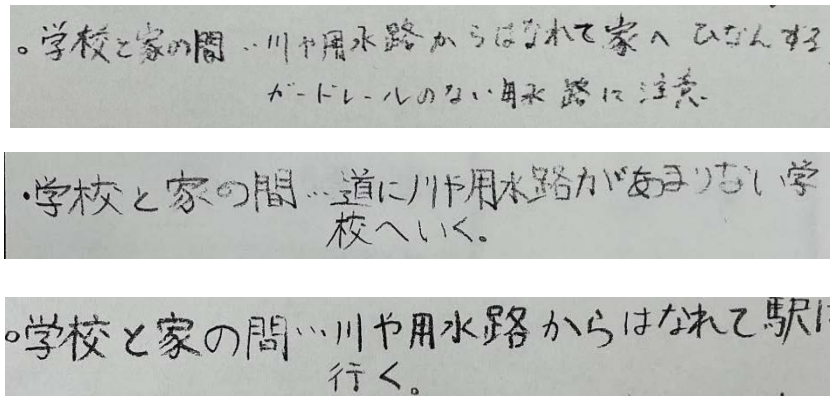 。学校と家の間…川や用水路からはなれて家へひなんする
ガードレールのない用水路に注意。
・学校と家の間…道に川や用水路があまりない学
校へいく。
○学校と家の間…川や用水路からはなれて駅に
行く。